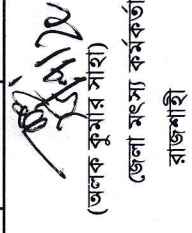 (অলক কুমার সাহা)
জেলা মৎস্য কর্মকর্তা
রাজশাহী